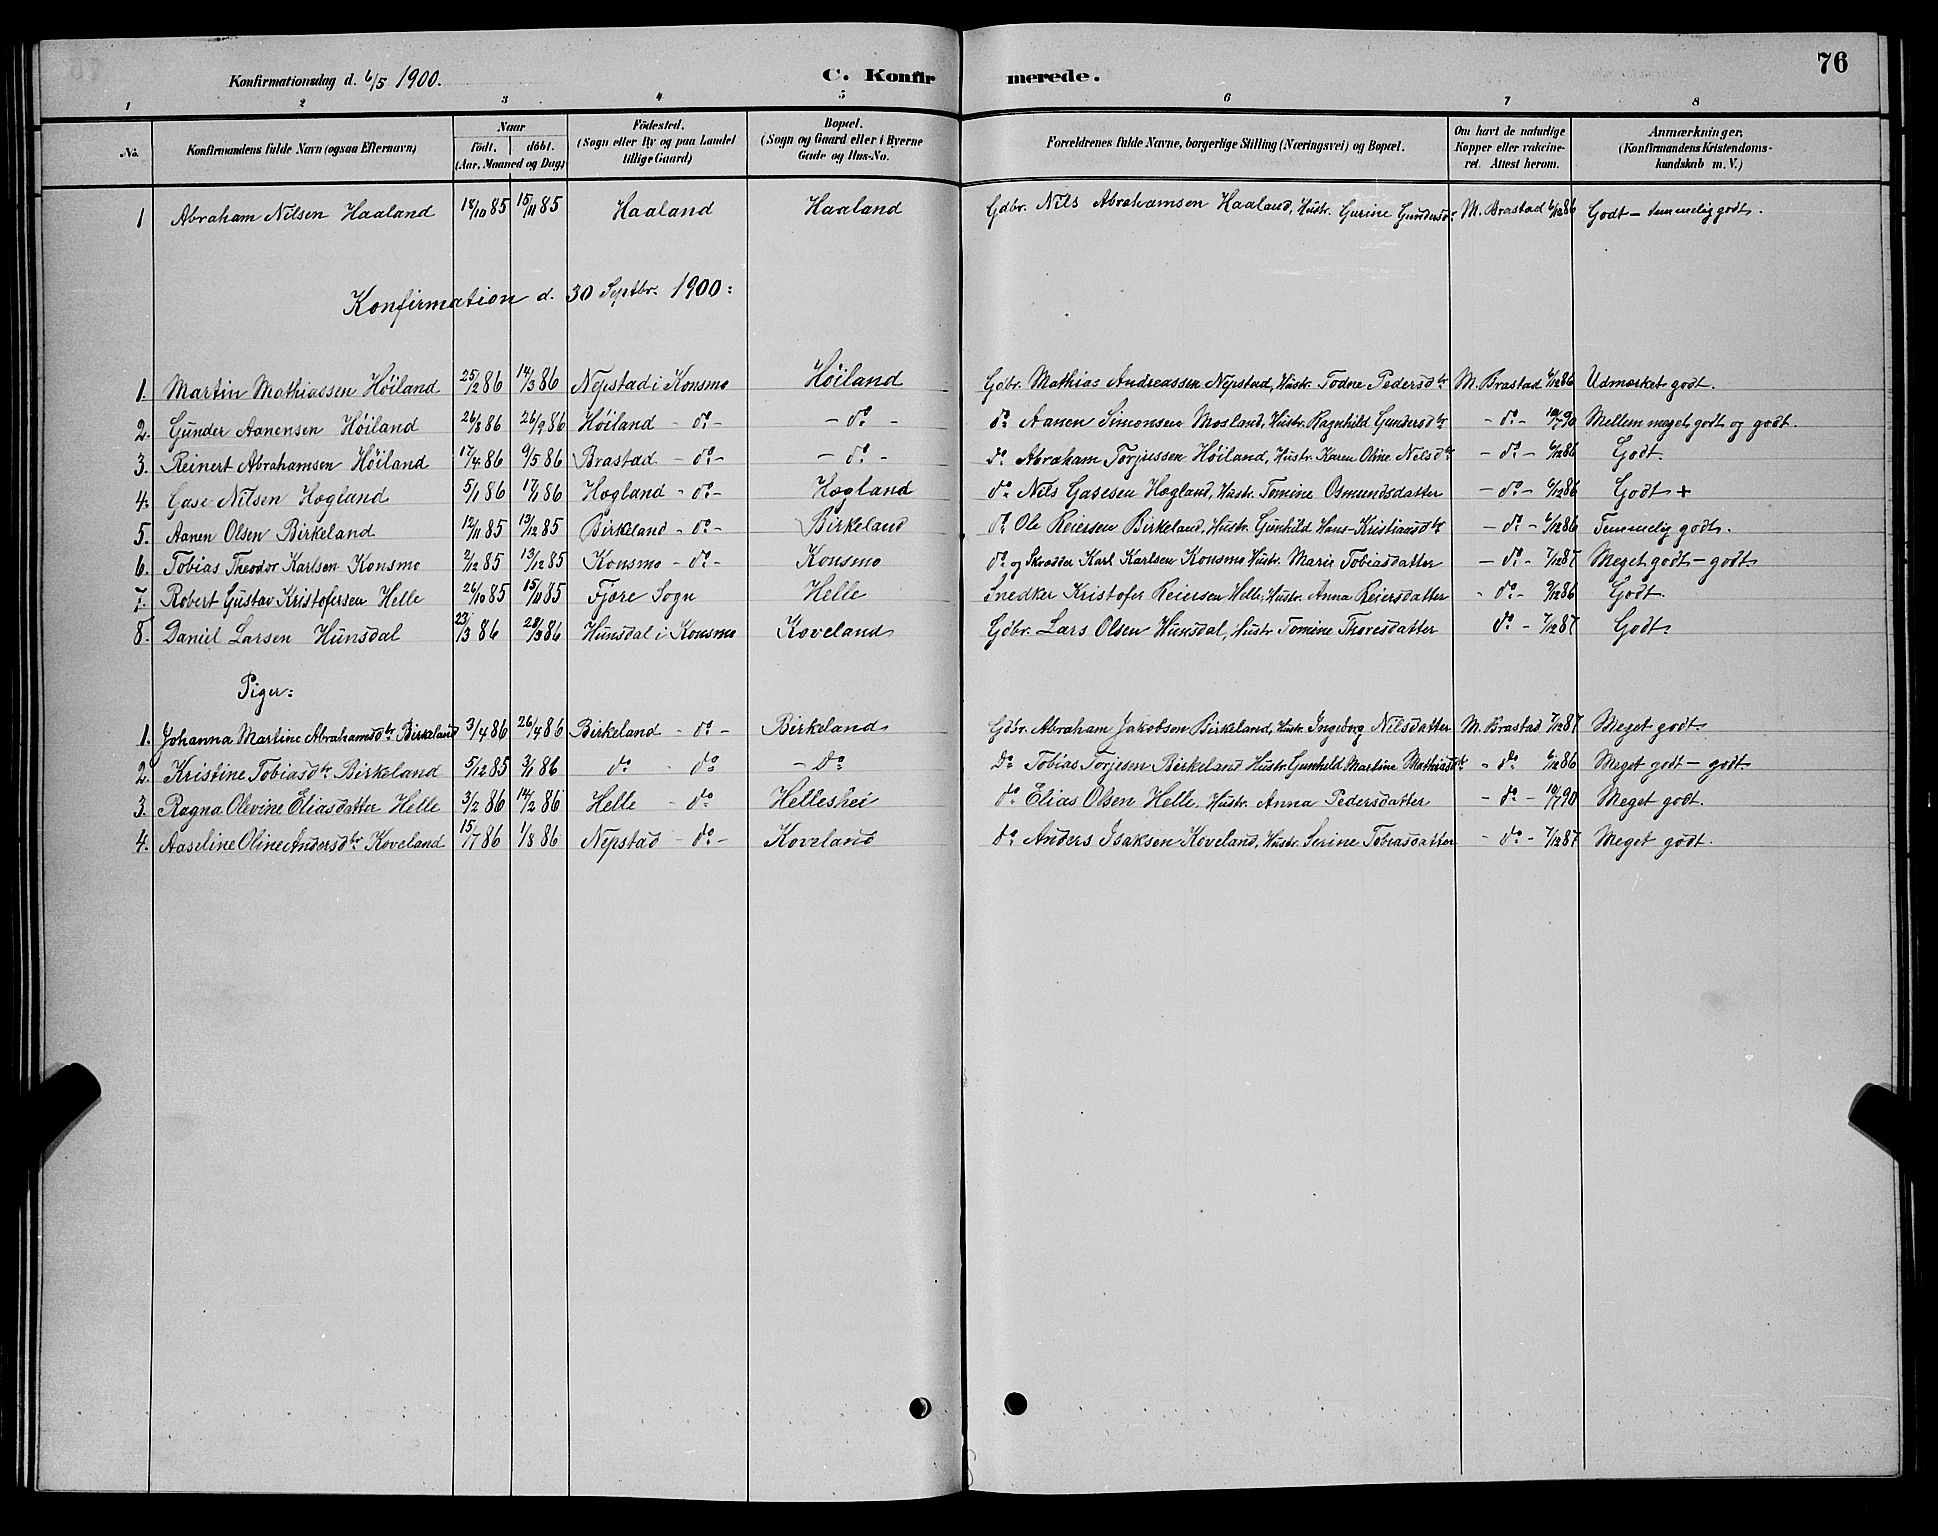 76
Konfirmationsdag d. 6/5 1900. C. Konfirmerede.
1 2 3 4 5 6 7 8
No. Konfirmandens fulde Navn (ogsaa Efternavn) Naar födt. döbt. (Aar, Maaned og Dag) Födested. (Sogn eller By og paa Landet tillige Gaard) Bopæl. (Sogn og Gaard eller i Byerne Gade og Hus-No. Forældrenes fulde Navne, borgerlige Stilling (Næringsvei) og Bopæl. Om havt de naturlige Kopper eller vakcineret. Attest herom. Anmærkninger. (Konfirmandens Kristendomskundskab m. V.)
1 Abraham Nilsen Haaland 18/10 85 15/11 85 Haaland Haaland Gdbr. Nils Abrahamsen Haaland, Hustr. Gurine Gundersdr M. Brastad 6/12 86 Godt - temmelig godt.
Konfirmation d. 30 Septbr. 1900:
1. Martin Mathiassen Höiland 25/2 86 14/3 86 Nepstad i Konsmo Höiland Gdbr. Mathias Andreassen Nepstad, Hustr. Todne Pedersdtr M. Brastad 6/12 86 Udmærket godt.
2. Gunder Aanensen Höiland 26/8 86 26/9 86 Höiland - do - - do - do Aanen Simonsen Mosland, Hustr. Ragnhild Gundersdtr - do - 10/7 90 Mellem meget godt og godt.
3. Reinert Abrahamsen Höiland 17/4 86 9/5 86 Brastad - do - - do - do Abraham Torjussen Höiland, Hustr. Karen Oline Nilsdtr - do - 6/12 86 Godt.
4. Gase Nilsen Hægland 5/1 86 17/1 86 Hægland - do - Hægland do Nils Gasesen Hægland, Hustr. Tomine Osmundsdatter - do - 6/12 86 Godt +
5. Aanen Olsen Birkeland 12/11 85 13/12 85 Birkeland - do - Birkeland do Ole Reiersen Birkeland, Hustr. Gunhild Hans-Kristiansdtr - do - 6/12 86 Temmelig godt.
6. Tobias Theodor Karlsen Konsmo 2/12 85 13/12 85 Konsmo - do - Konsmo do og Skrædder Karl Karlsen Konsmo Hustr. Marie Tobiasdatter - do - 7/12 87 Meget godt - godt
7. Robert Gustav Kristofersen Helle 26/10 85 15/11 85 Fjære Sogn Helle Snedker Kristofer Reiersen Helle, Hustr. Anna Reiersdatter - do - 9/12 86 Godt.
8. Daniel Larsen Hunsdal 23/3 86 28/3 86 Hunsdal i Konsmo Koveland Gdbr. Lars Olsen Hunsdal, Hustr Tomine Thoresdatter do - 7/12 87 Godt.
Piger:
1. Johanna Martine Abrahamsdtr Birkeland 3/4 86 26/4 86 Birkeland - do - Birkeland Gdbr. Abraham Jakobsen Birkeland, Hustr. Ingeborg Nilsdatter M. Brastad 7/12 87 Meget godt.
2. Kristine Tobiasdtr Birkeland 5/12 85 3/1 86 do - do - Do Do Tobias Torjesen Birkeland Hustr. Gunhild Martine Mathiasdtr - do 6/12 86 Meget godt - godt
3. Ragna Olevine Eliasdatter Helle 3/2 86 14/2 86 Helle - do Helleshei do Elias Olsen Helle, Hustr. Anna Pedersdatter - do - 10/7 90 Meget godt.
4. Aaseline Oline Andersdtr Koveland 15/7 86 1/8 86 Nepstad - do - Koveland do Anders Isaksen Koveland, Hustr. Serine Tobiasdatter - do - 7/12 87 Meget godt.